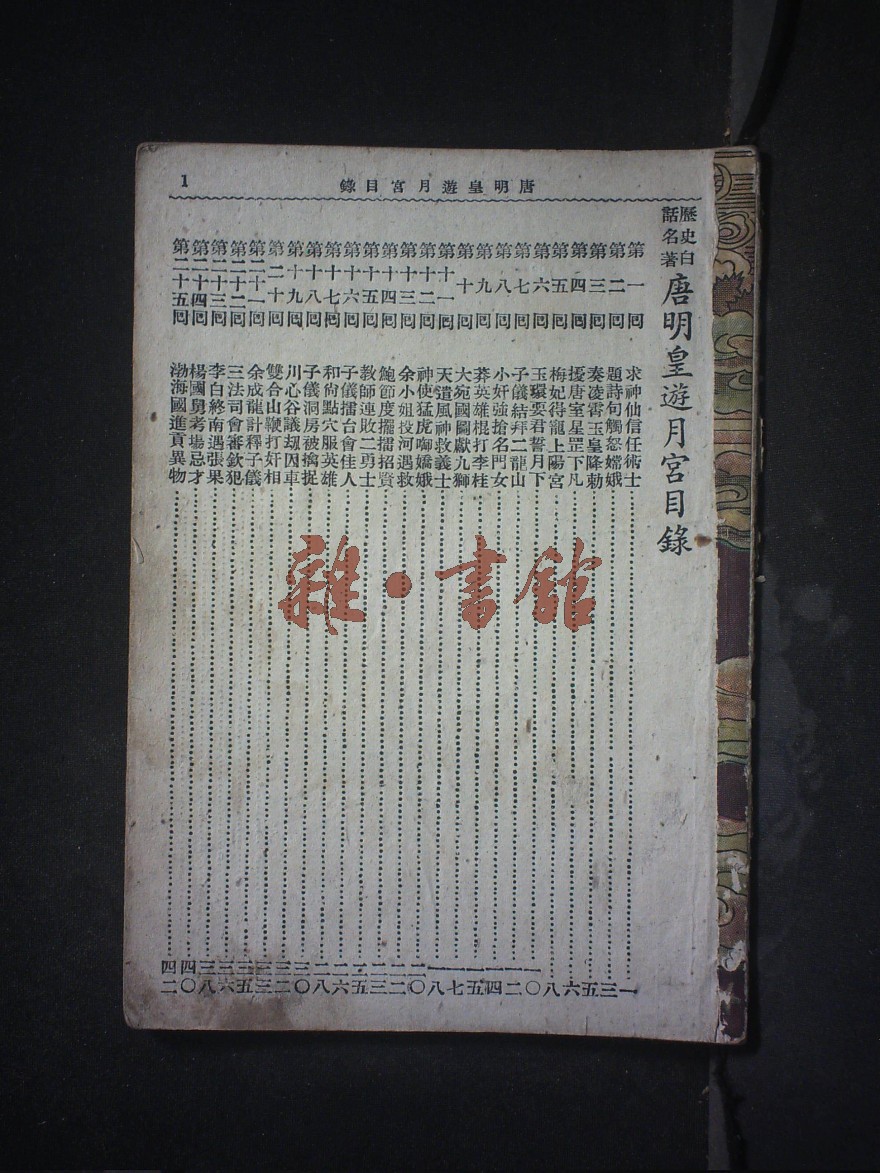 唐明皇遊月宮目錄
1
歷史白話名著 唐明皇遊月宮目錄
第一囘 求神仙信任術士……一
第二囘 題詩句觸怒嫦娥……三
第三囘 奏凌霄玉皇降勅……五
第四囘 擾唐室星罡下凡……六
第五囘 梅妃得寵上陽宮……八
第六囘 玉環要君誓月下……一〇
第七囘 子儀結拜二龍山……一二
第八囘 小奸強搶名門女……一四
第九囘 莽英雄棍打李桂……一五
第十囘 大宛國圖獻九獅……一七
第十一囘 天遣風神救義士……一八
第十二囘 神使猛虎啣嬌娥……二〇
第十三囘 余小姐投河遇救……二二
第十四囘 鮑節度擺擂招賢……二三
第十五囘 教師連敗二勇士……二五
第十六囘 子儀擂台會佳人……二六
第十七囘 和尙點穴服英雄……二八
第十八囘 子儀洞房被擒捉……三〇
第十九囘 川心谷議刼囚車……三二
第二十囘 雙合山鞭打奸相……三三
第二十一囘 余成龍計釋子儀……三五
第二十二囘 三法司會審欽犯……三六
第二十三囘 李白終南遇張果……三八
第二十四囘 楊國舅考場忌才……四〇
第二十五囘 渤海國進貢異物……四二
雜·書館